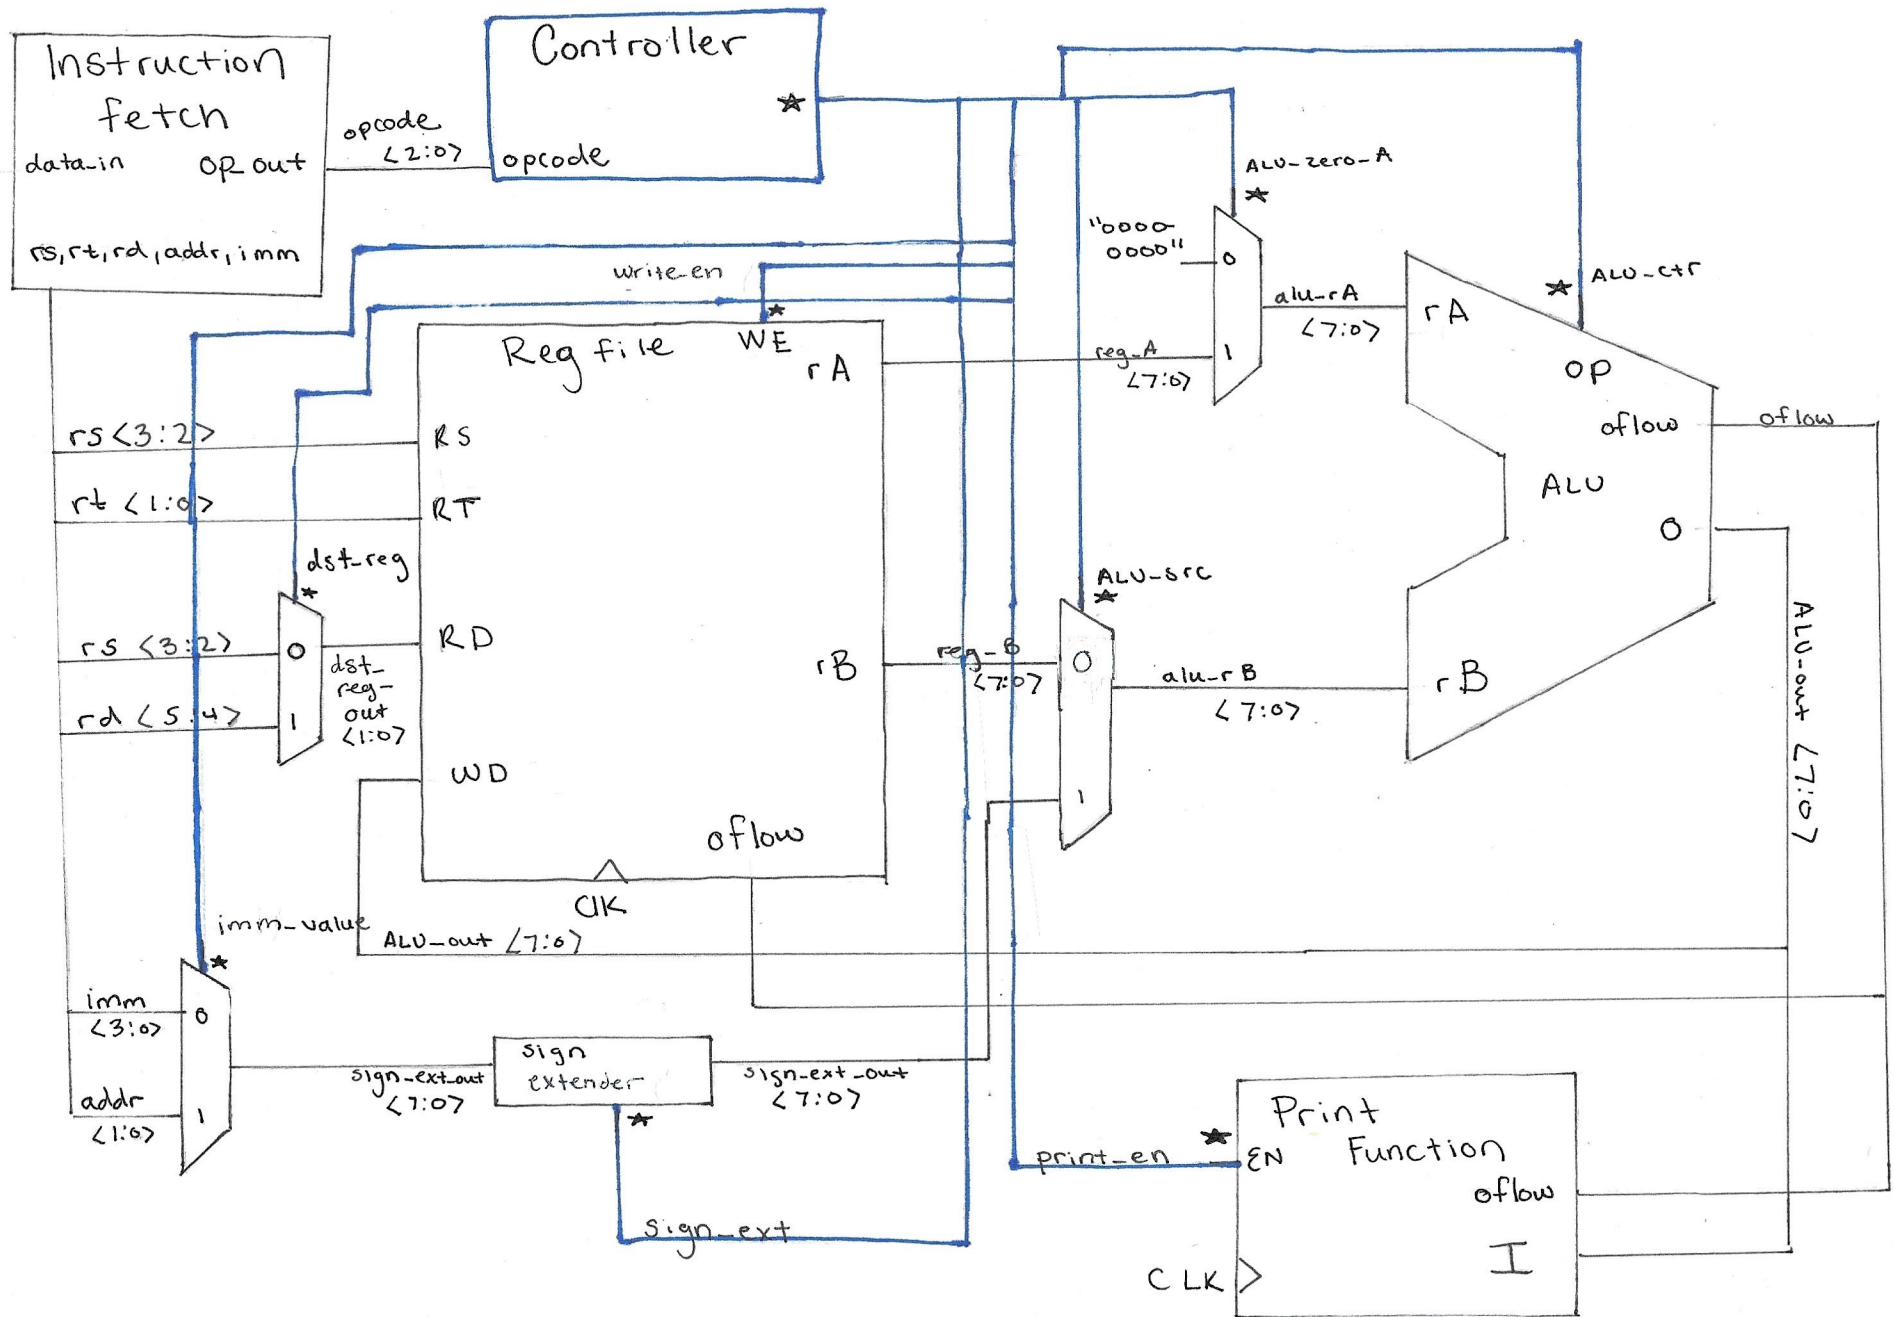 Instruction
fetch
data_in
op_out
rs, rt, rd, addr, imm
opcode
<2:0>
Controller
*
opcode
ALU_zero_A
*
"0000
0000"
0
1
alu_rA
<7:0>
reg_A
<7:0>
ALU_ctr
*
rA
OP
oflow
ALU
O
rB
oflow
ALU_out <7:0>
write_en
*
Reg file
WE
rA
RS
RT
RD
rB
WD
oflow
Clk
rs <3:2>
rt <1:0>
dst_reg
*
rs <3:2>
0
rd <5:4>
1
dst_
reg_
out
<1:0>
reg_B
<7:0>
ALU_src
*
0
1
alu_rB
<7:0>
imm_value
*
ALU_out <7:0>
imm
<3:0>
0
addr
<1:0>
1
sign_ext_out
<7:0>
sign
extender
*
sign_ext_out
<7:0>
sign_ext
print_en
*
Print
Function
EN
oflow
I
CLK